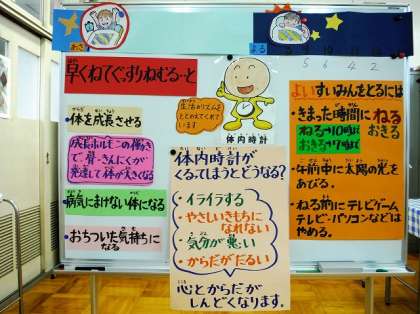 あさ
よる
5 6 4 2
早くねてぐっすりねむるーと
・体を成長させる
成長ホルモンの働き
で、骨・きんにくが
発達して体が大きくなる
・病気にまけない体になる
・おちついた気持ちに
なる
生活のリズムを
ととのえてくれて
います。
体内時計
体内時計が
くるってしまうとどうなる?
・イライラする
・やさしいきもちに
なれない
・気分が悪い
・からだがだるい
心とからだが
しんどくなります。
よいすいみんをとるには
・きまった時間にねる
おきる
ねる→10時まで
おきる→7時まで
・午前中に太陽の光を
あびる。
・ねる前にテレビゲーム
テレビ・パソコンなどは
やめる。